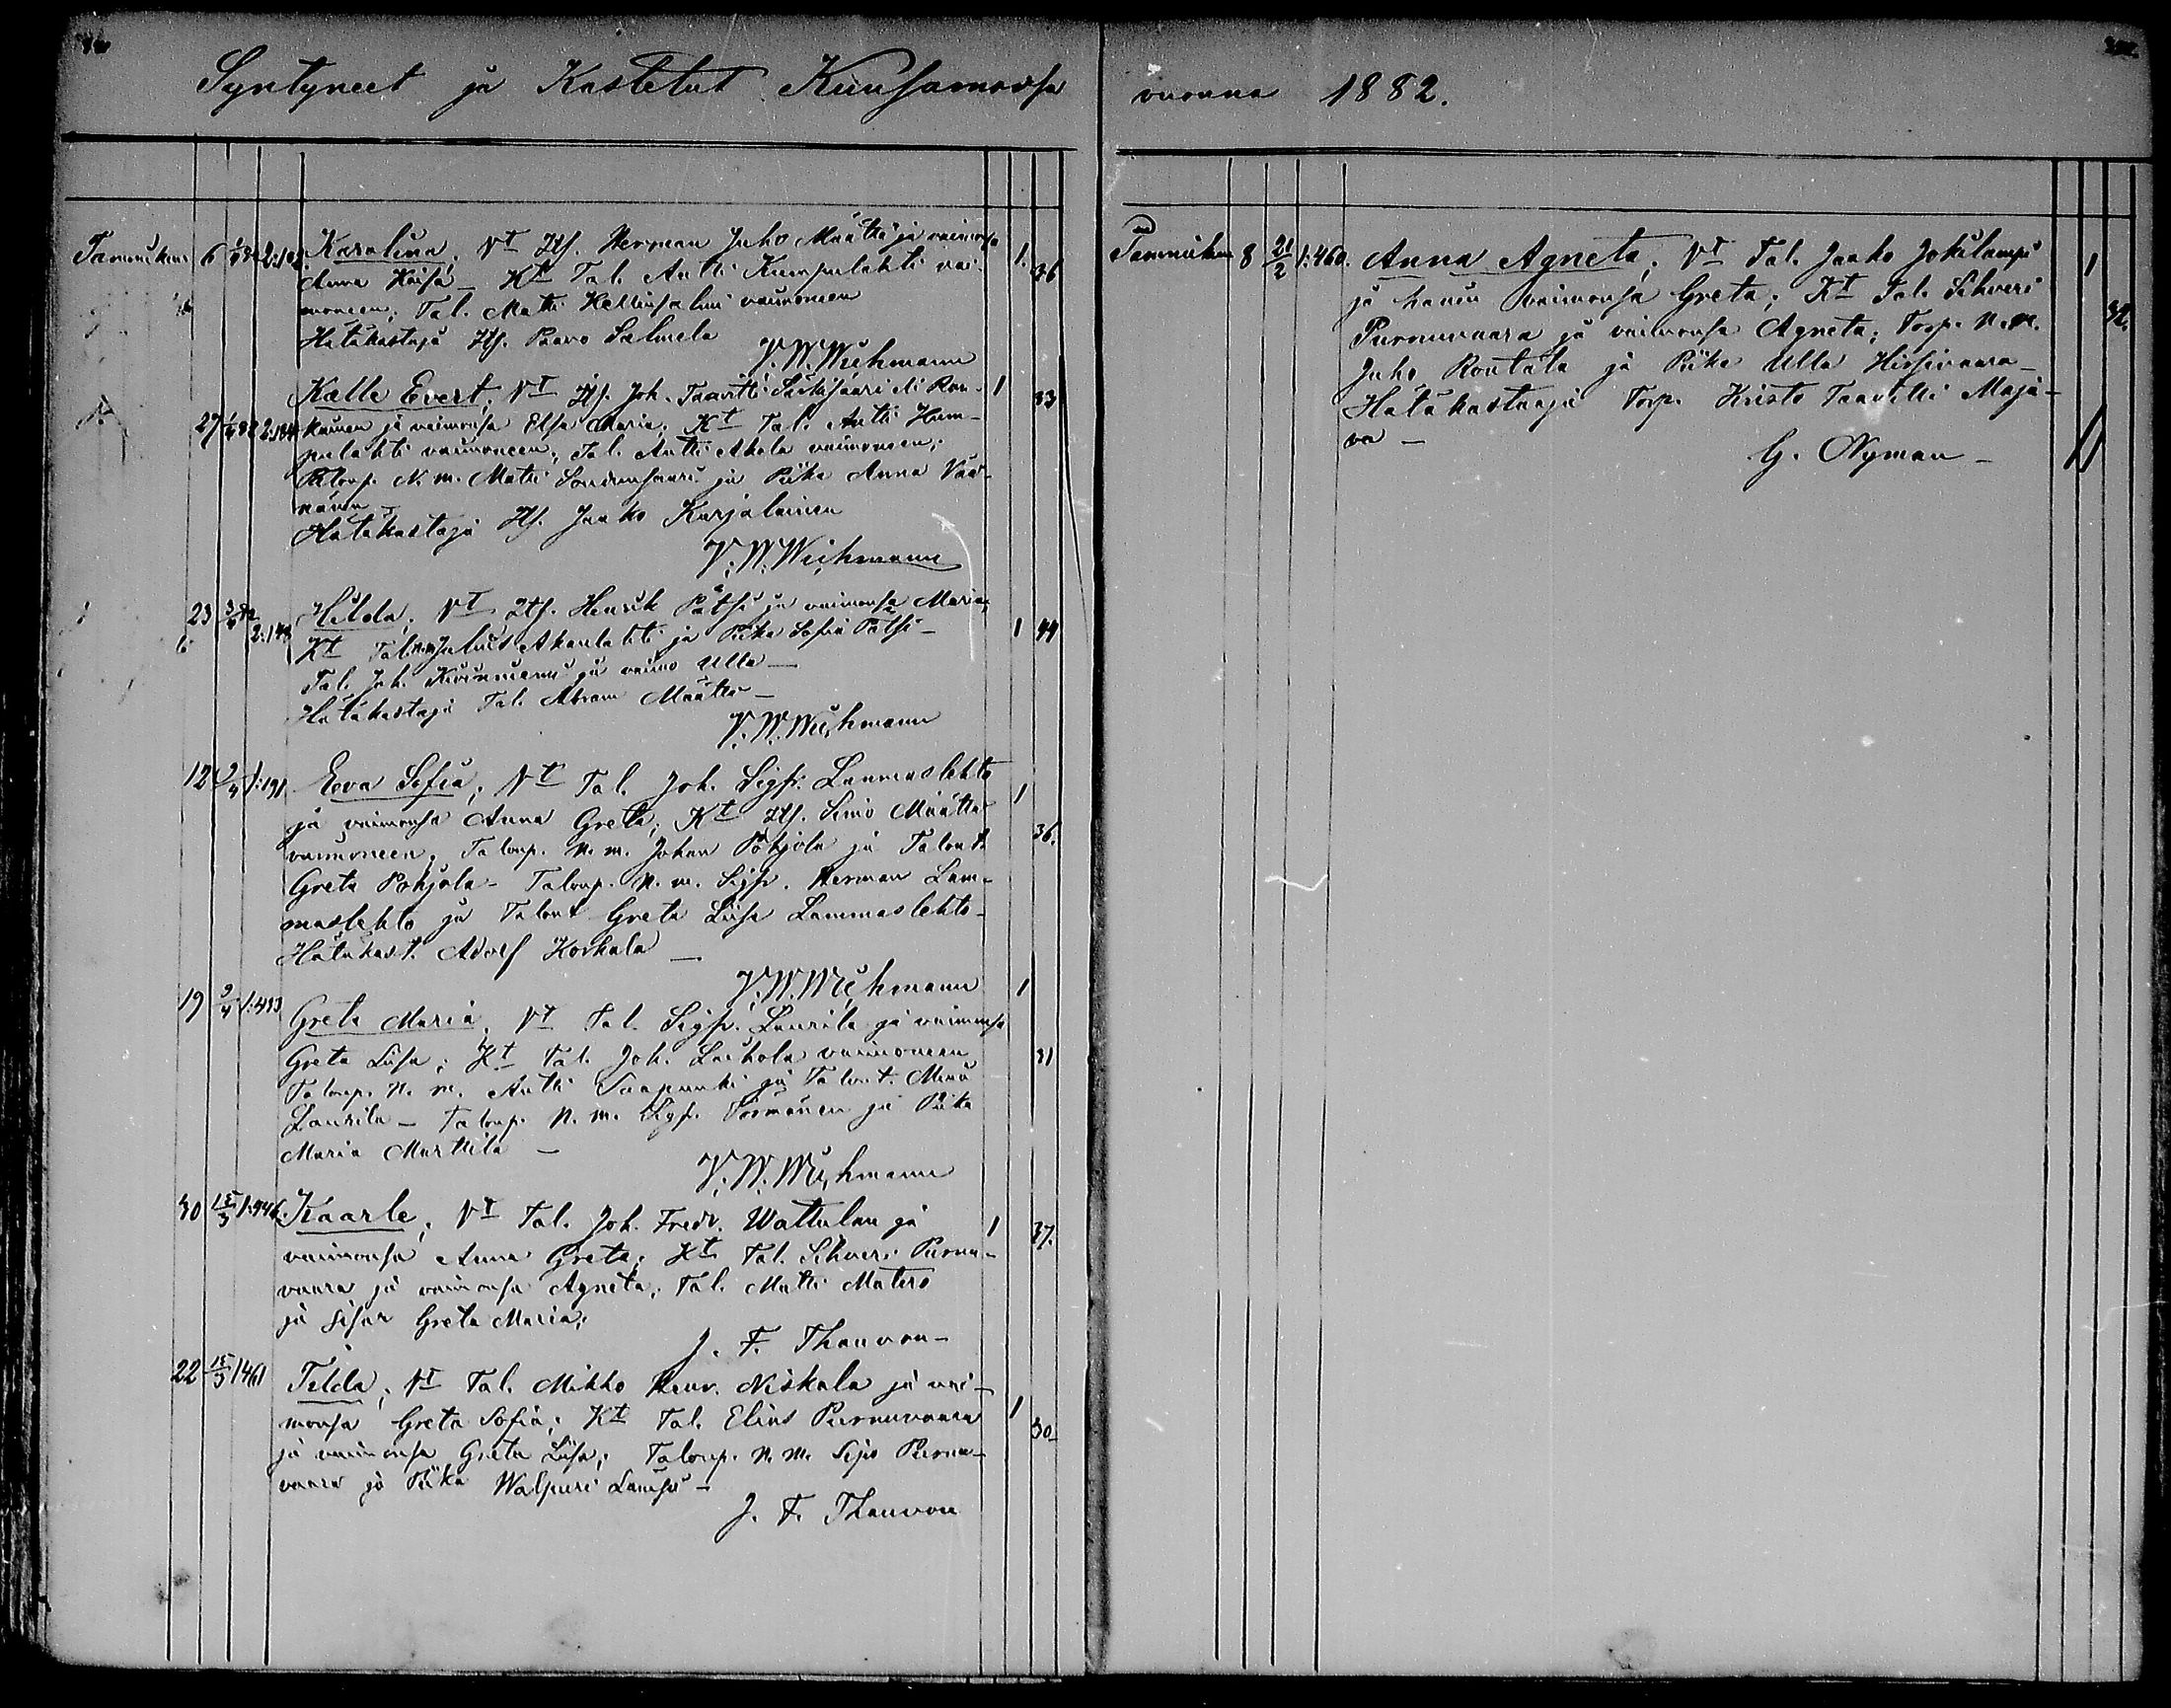 Syntyneet ja Kastetut Kuusamossa
Tammikuu 6 2:102 Karolina, Vt Itl. Herman Juho Määttä ja vaimonsa 1.
Anna Kaisa – Kt Tal. Antti Kumpulahti vai- 36
moneen; Tal. Matti Kallunsalmi vaimoneen
Hätäkastaja Itl. Paavo Salmela
V. W. Wichmann
Kalle Evert, Vt Itl. Joh. Taavetti Särkisaari eli Ron- 1 33
27 2:184 kainen ja vaimonsa Elsa Maria; Kt Tal. Antti Kum-
pulahti vaimoneen; Tal. Antti Akola vaimoneen;
Taloup. N. m. Matti ja Piika Anna Vää-
nänen –
Hätäkastaja Itl. Jaako Karjalainen
V. W. Wichmann
23 2:148 Hilda, Vt Itl. Henrik Pätsi ja vaimonsa Maria;
Kt Julius Akanlahti ja Piika Sofia Pätsi – 1 44
Tal. Joh. Kurvinniemi ja vaimo Ulla –
Hätäkastaja Tal. Abram Määttä –
V. W. Wichmann
12 2/4 1:191 Eeva Sofia; Vt Tal. Joh. Sigfr. Lammaslehto
ja vaimonsa Anna Greta; Kt Itl. Simo Määttä 1
vaimoneen; Taloup. N. m. Johan Pohjola ja Talont. 36.
Greta Pohjola – Taloup. N. m. Sigfr. Herman Lam-
maslehto ja Talont Greta Liisa Lammaslehto –
Hätäkast. Adolf Korkala –
V. W. Wichmann
19 1:433 Greta Maria, Vt Tal. Sigfr. Laurila ja vaimonsa 1
Greta Liisa; Kt Tal. Joh. Laihola vaimoneen 31
Taloup. N. m. Antti Saapunki ja Talont. Mina
Laurila – Taloup. N. m. Sigfr. Törmänen ja Piika
Maria Marttila –
V. W. Wichmann
30 15/3 1:446. Kaarle, Vt Tal. Joh. Fredr. Wattulan ja 1 37.
vaimonsa Anna Greta; Kt Tal. Sihveri Purnu-
vaara ja vaimonsa Agneta; Tal. Matti Matero
ja sisar Greta Maria;
J. F. Thauvon –
22 15/3 1461 Tilda; Vt Tal. Mikko Henr. Niskala ja vai-
monsa Greta Sofia; Kt Tal. Elias Purnuvaara 1
ja vaimonsa Greta Liisa; Taloup. N. m. Sipo Purnu- 30
vaara ja Piika Walpuri Lämsä –
J. F. Thauvon
vuonna 1882.
Tammikuu 8 21/2 1:460. Anna Agneta; Vt Tal. Jaako Jokilampi 1
ja hänen vaimonsa Greta; Kt Tal. Sihveri
Purnuvaara ja vaimonsa Agneta; Torp. N. m. 32.
Juho Rontala ja Piika Ulla Hirsivaara –
Hätäkastaaja Torp. Kristo Taavetti Maja-
va –
G. Nyman –